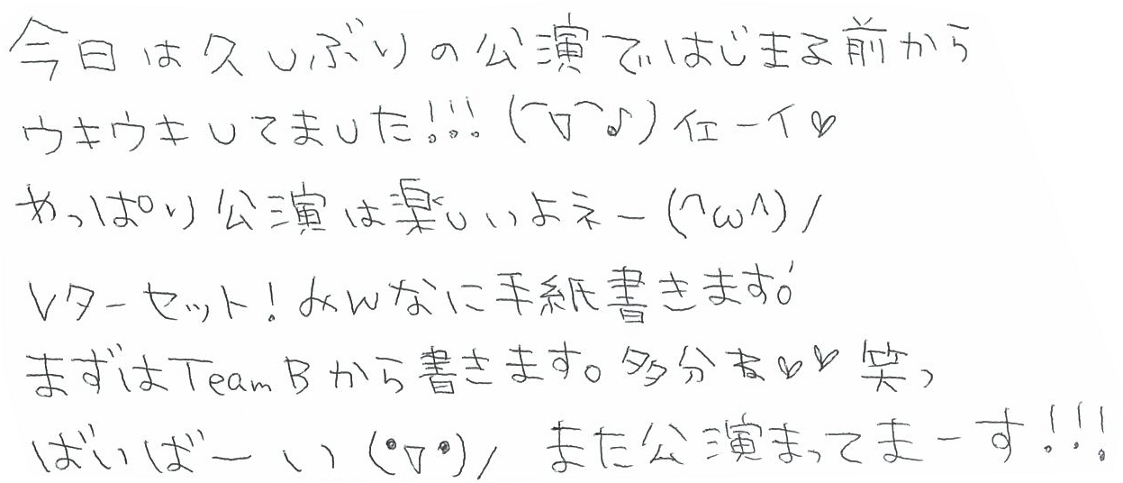 今日は久しぶりの公演ではじまる前から
ウキウキしてました!!! (⌒▽⌒♪) イェーイ♡
やっぱり公演は楽しいよネー (^ω^)/
レターセット! みんなに手紙書きます!
まずは Team B から書きます。多分ね♡♡ 笑っ
ばいばーい (•▽•)/ また公演まってまーす!!!